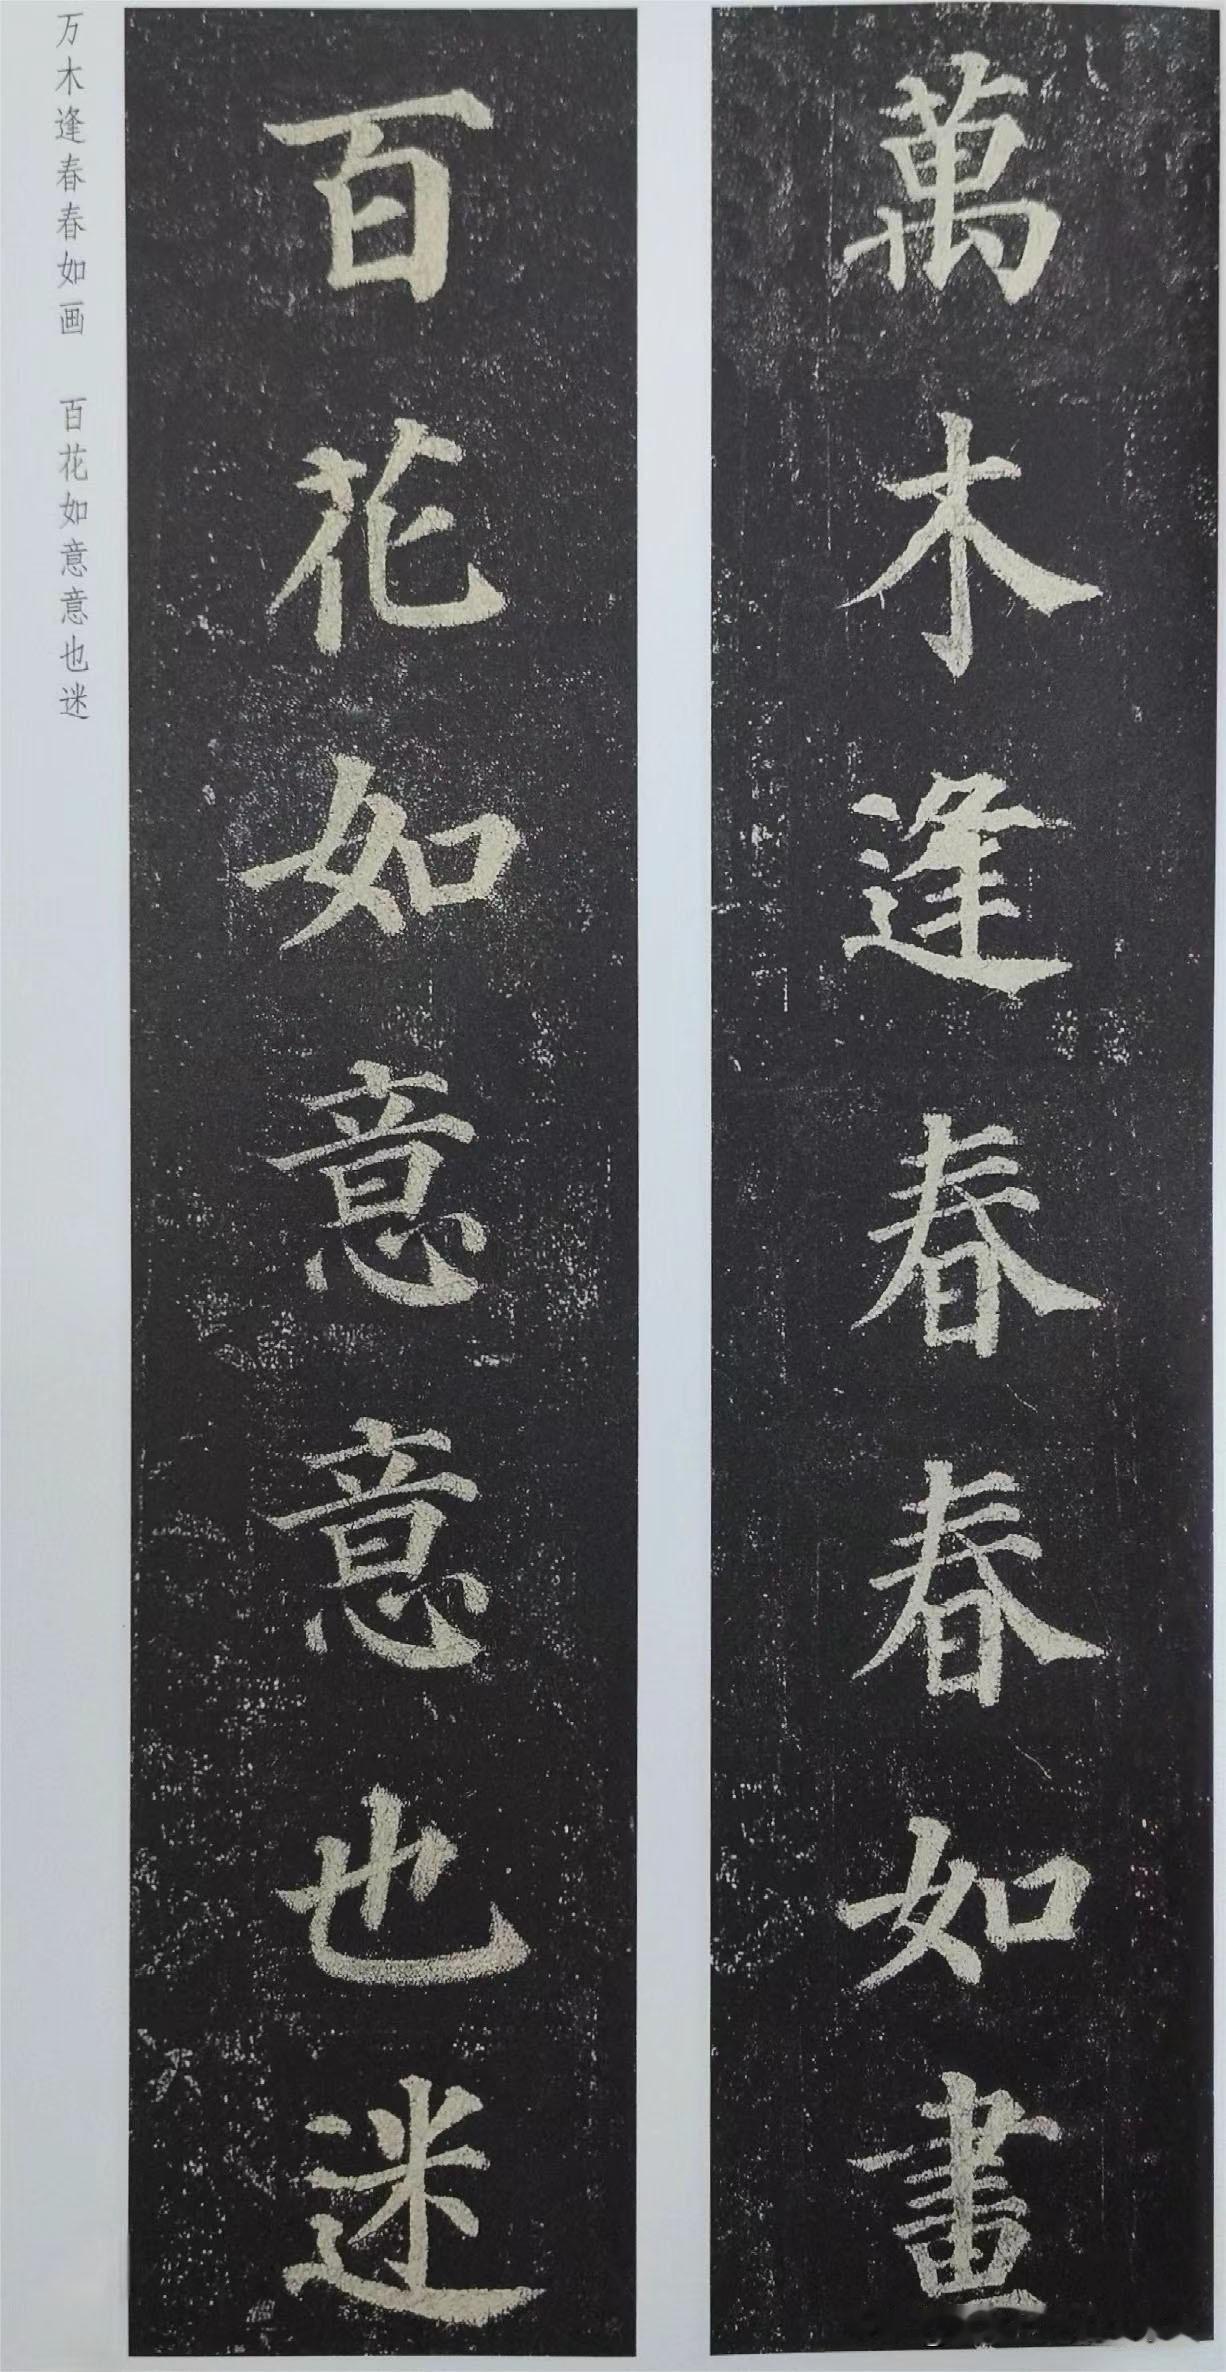 萬木逢春春如畫
百花如意意也迷
万木逢春春如画 百花如意意也迷